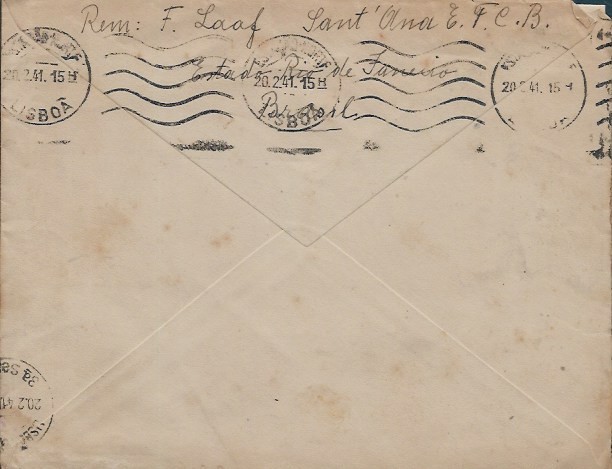 Rem: F. Laaf Sant'Ana E.F.C.B.
Estado Rio de Janeiro
Brasil
20.2.41. 15H
LISBOA
20.2.41. 15H
LISBOA
20.2.41. 15H
20.2.41